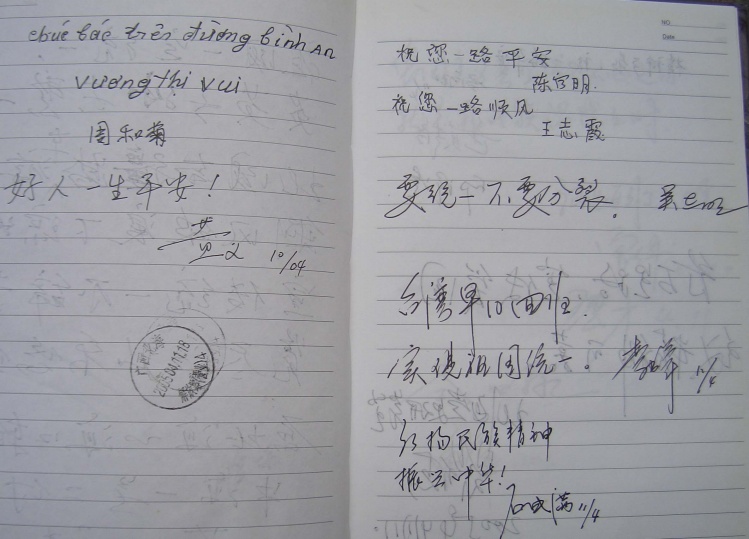 chúc bác trên đường bình An
vương thị vui
周和菊
好人一生平安！
10/04
2005.04.11.18
NO.
Date
祝您一路平安
陈官明.
祝您一路顺风
王志霞
要统一不要分裂.
台湾早10回归.
实现祖国统一.
11/4
弘扬民族精神
振兴中华！
11/4